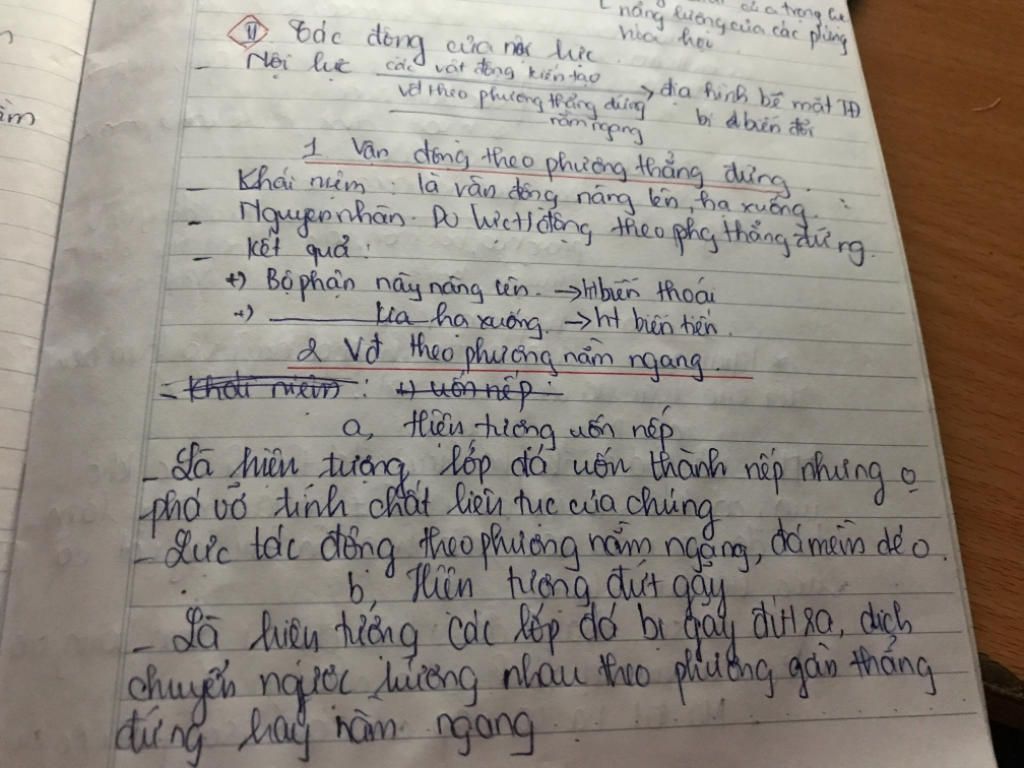 năng lượng của các phùng
hóa học
II Tác động của nội lực
- Nội lực các vât đông kiến tạo → địa hình bề mặt TĐ
vđ theo phương thẳng đứng bị biến đổi
nằm ngang
1 Vận động theo phương thẳng đứng.
- Khái niệm : là vân đông nâng lên hạ xuống.
- Nguyên nhân. Do lực t/động theo phg thẳng đứng.
- Kết quả :
+) Bộ phận này nâng lên. → ht biển thoái
+) ______ kia hạ xuống. → ht biển tiến.
2 Vđ theo phương nằm ngang.
- Khái niệm : +) uốn nếp :
a, Hiên tương uốn nếp
- Là hiên tượng lớp đá uốn thành nếp nhưng o
phá vỡ tính chất liên tục của chúng
- Lực tác động theo phương nằm ngang, đá mềm dẻo.
b, Hiên tương đứt gãy
- Là hiên tương các lớp đá bị gãy đứt ra, dịch
chuyển ngược hương nhau theo phương gần thẳng
đứng hay nằm ngang